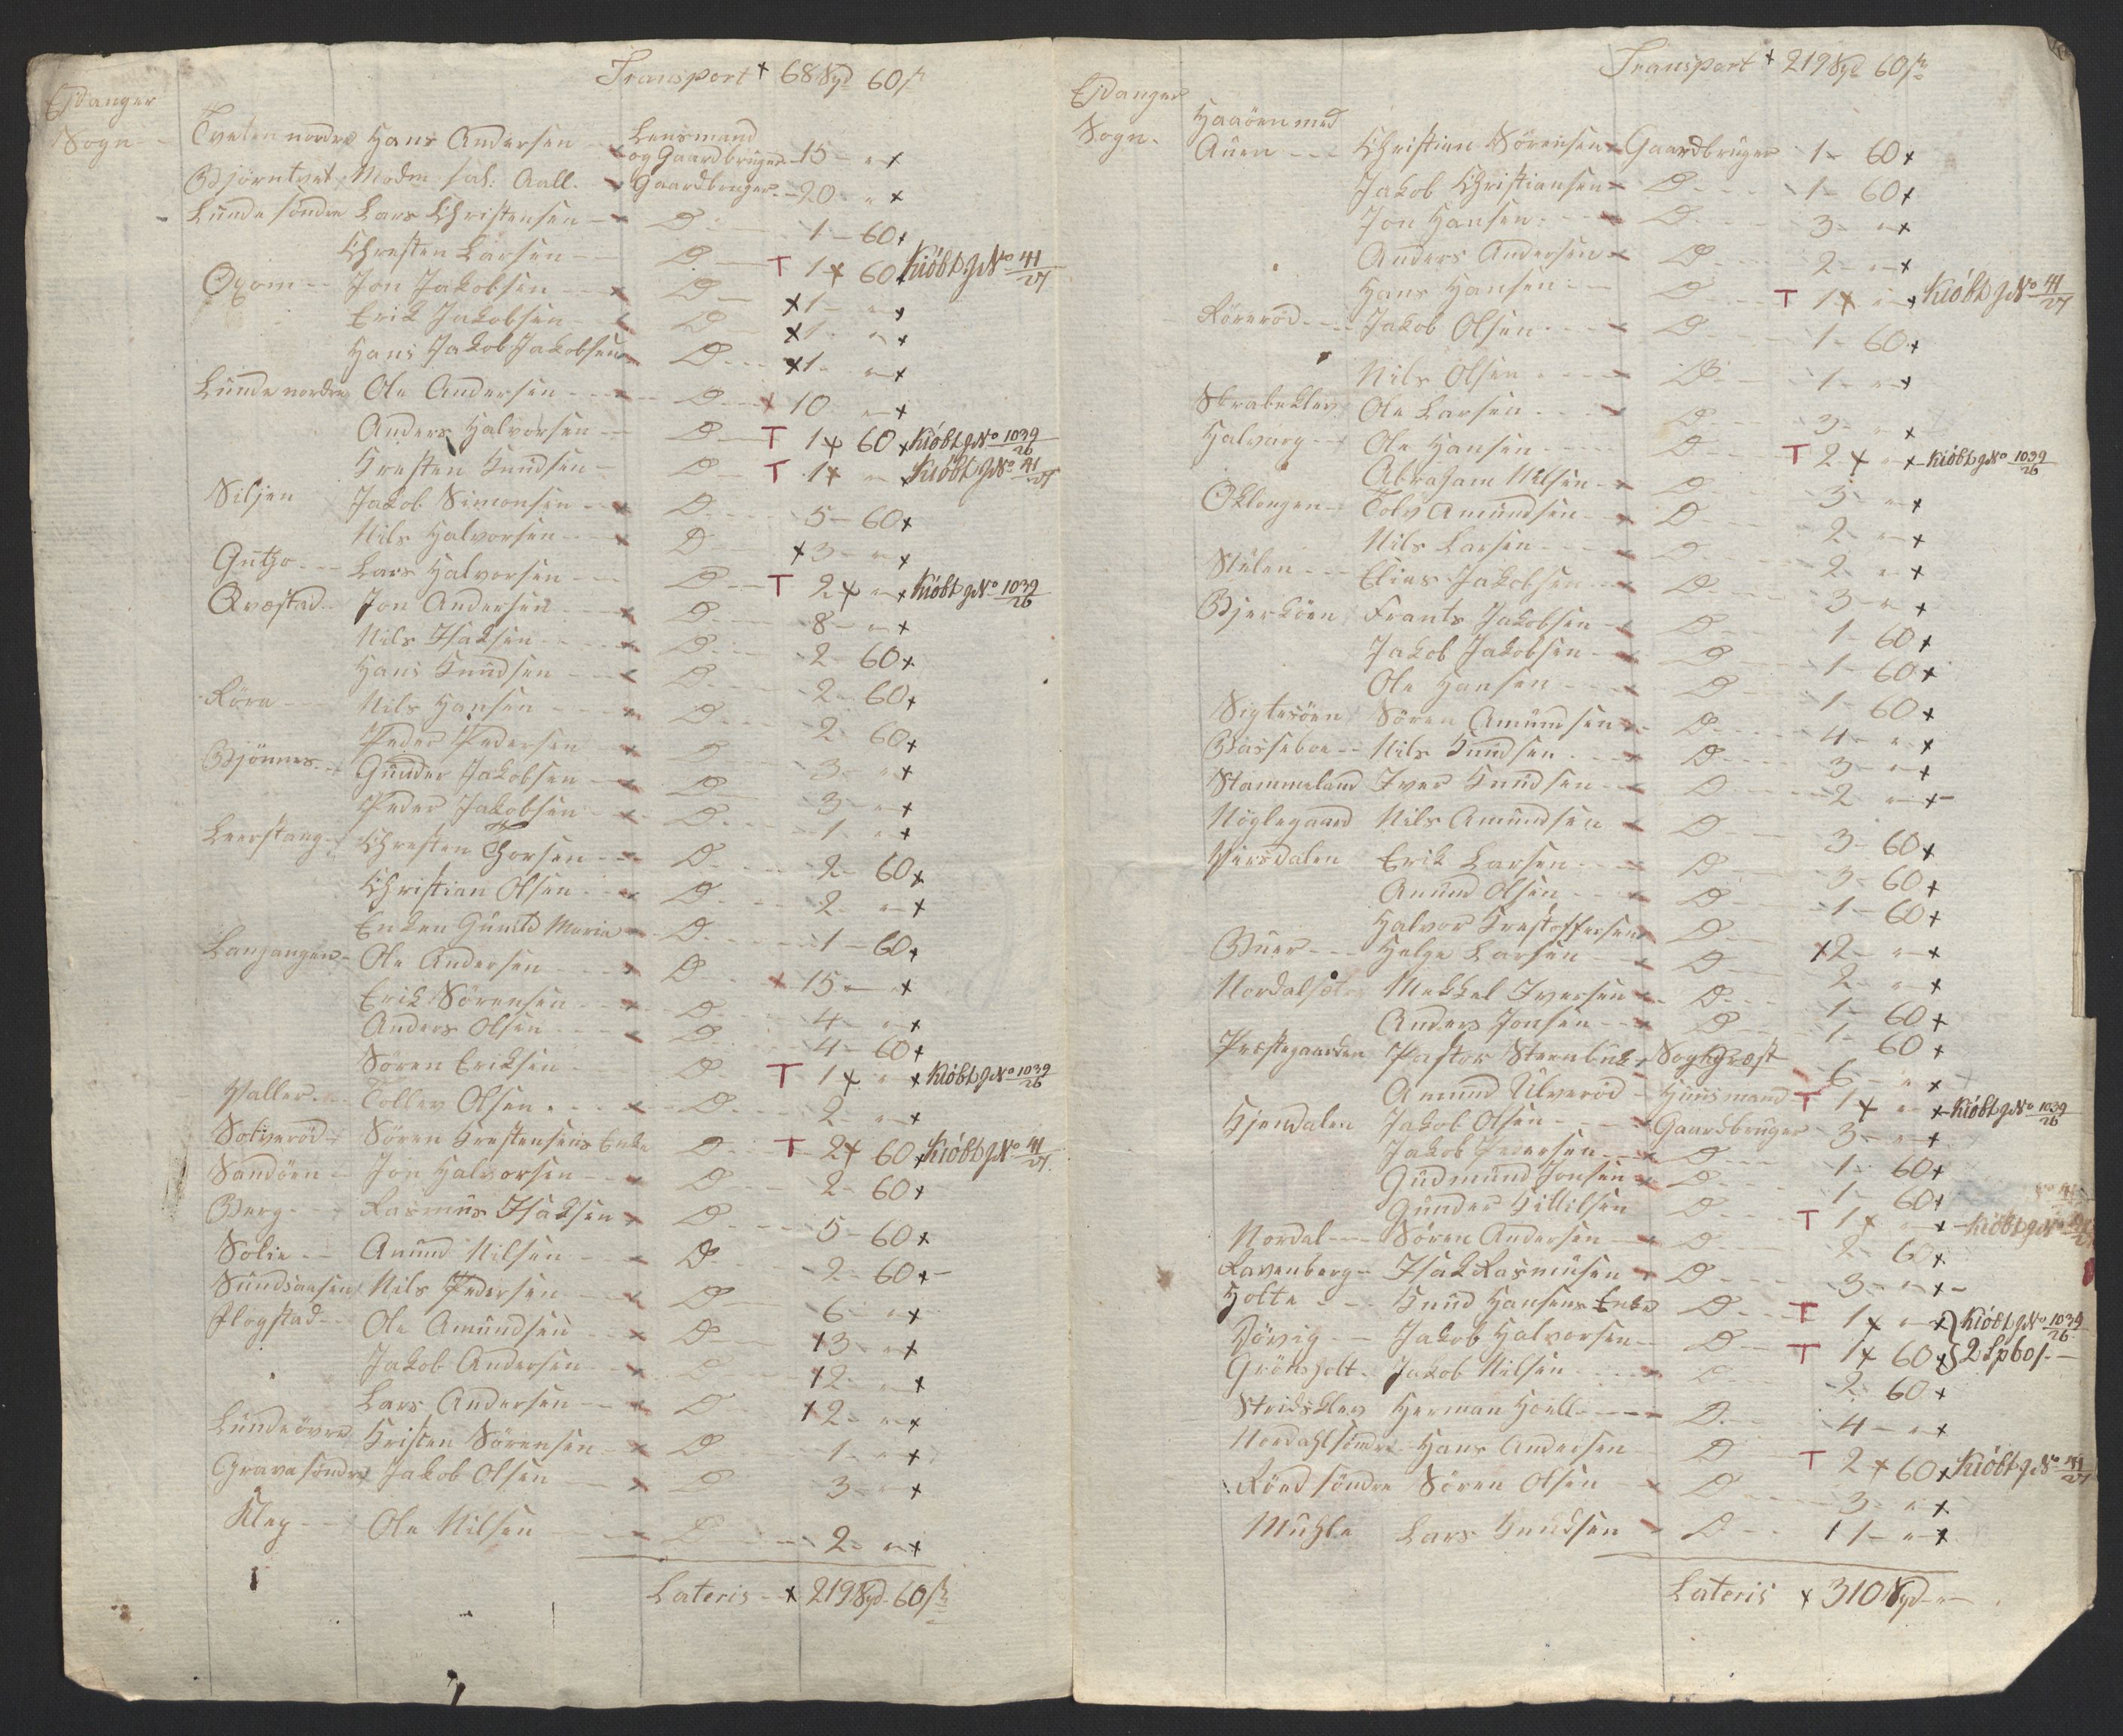 Transport 68 Spd 60 ß
Ejdanger
Sogn
Tveten nordre Hans Andersen Lensmand
og Gaardbruger 15 - "
Bjørntvet Madm sal: Aall. Gaardbruger 20 "
Lunde söndre Lars Christensen D 1 - 60
Chresten Larsen D T 1 60 Kiöbt g No 41/27
Oxom Jon Jakobsen D 1 - "
Erik Jakobsen D 1 "
Hans Jakob Jakobsen D 1 - "
Lunde nordre Ole Andersen D 10 "
Anders Halvorsen D T 1 60 Kiöbt g No 1039/26
Kresten Knudsen D T 1 " Kiöbt g No 41/27
Siljen Jakob Simonsen D 5 - 60
Nils Halvorsen D 3 - "
Lars Halvorsen D T 2 " Kiöbt g No 1039/26
Qvæstad Jon Andersen D 8 - "
Nils Isaksen D 2 60
Hans Knudsen D 2 60
Röra Nils Hansen D 2 60
Peder Pedersen D 3 "
Bjönnes Gunder Jakobsen D 3 - "
Peder Jakobsen D 1 "
Leerstang Chresten Thorsen D 2 - 60
Christian Olsen D 2 "
Enken Gunild Maria D 1 - 60
Langangen Ole Andersen D 15 -
Erik Sörensen D 4 - "
Anders Olsen D 4 - 60
Sören Eriksen D T 1 " Kiöbt g No 1039/26
Valler Tollev Olsen D 2 "
Solverød Sören Krestensens Enke D T 2 60 Kiöbt g No 41/27
Sandöen Jon Halvorsen D 2 60
Berg Rasmus Isaksen D 5 - 60
Solie Anund Nilsen D 2 60
Sundsaasen Nils Pedersen D 6 "
Flogstad Ole Amundsen D 3 - "
Jakob Andersen D 2 - "
Lars Andersen D 2 - "
Lunde övre Kristen Sörensen D 1 - "
Grava söndre Jakob Olsen D 3 - "
Klep Ole Nilsen D 2 "
Lateris 219 Spd 60 ß
Transport 219 Spd 60 ß
Ejdanger
Sogn.
Haaöen med
Auen Christian Sörensen Gaardbruger 1 - 60
Jakob Christiansen D 1 - 60
Jon Hansen D 3 - "
Anders Andersen D 2 - "
Hans Hansen D T 1 " Kiöbt g No 41/27
Röreröd Jakob Olsen D 1 - 60
Nils Olsen D 1 - "
Skrabeklev Ole Larsen D 3 - "
Halvarp Ole Hansen D T 2 " Kiöbt g No 1039/26
Abraham Nilsen D 3 "
Oklungen Tolv Amundsen D 2 "
Nils Larsen D 2 "
Stulen Elias Jakobsen D 3 - "
Bjerköen Frants Jakobsen D 1 - 60
Jakob Jakobsen D 1 - 60
Ole Hansen D 1 - 60
Sigtesöen Sören Amundsen D 4 - "
Basseboe Nils Knudsen D 3 - "
Stammeland Iver Knudsen D 2 "
Nöglegaard Nils Amundsen D 3 - 60
Versdalen Erik Larsen D 3 - 60
Anund Olsen D 1 - 60
Halvor Krestoffersen D 2 - "
Buer Helge Larsen D 2 - "
Nordalsæt Mekkel Iversen D 1 - 60
Anders Jonsen D 1 - 60
Præstegaarden Pastor Steenbuk Sognepræst 6 - "
Amund Ulveröd Huusmand T 1 " Kiöbt g No 1039/26
Kjendalen Jakob Olsen Gaardbruger 3 - "
Jakob Pedersen D 1 60
Gudmund Jonsen D 1 - 60
Gunder Kittilsen D T 1 " Kiöbt g No
Nordal Sören Andersen D 2 60
Ravenberg Isak Rasmusen D 3 - "
Holte Knud Hansens Enke D T 1 " Kiöbt g No 1039/26
Jakob Halvorsen D T 1 60 2 Spb 0 ß
Grönsholt Jakob Nilsen D 2 60
Stridsklev Herman Hoell D 4 - "
Nordahl söndre Hans Andersen D T 2 60 Kiöbt g No 41/27
Röed söndre Sören Olsen D 3 - "
Muhle Lars Knudsen D 1 - "
Lateris 310 Spd "